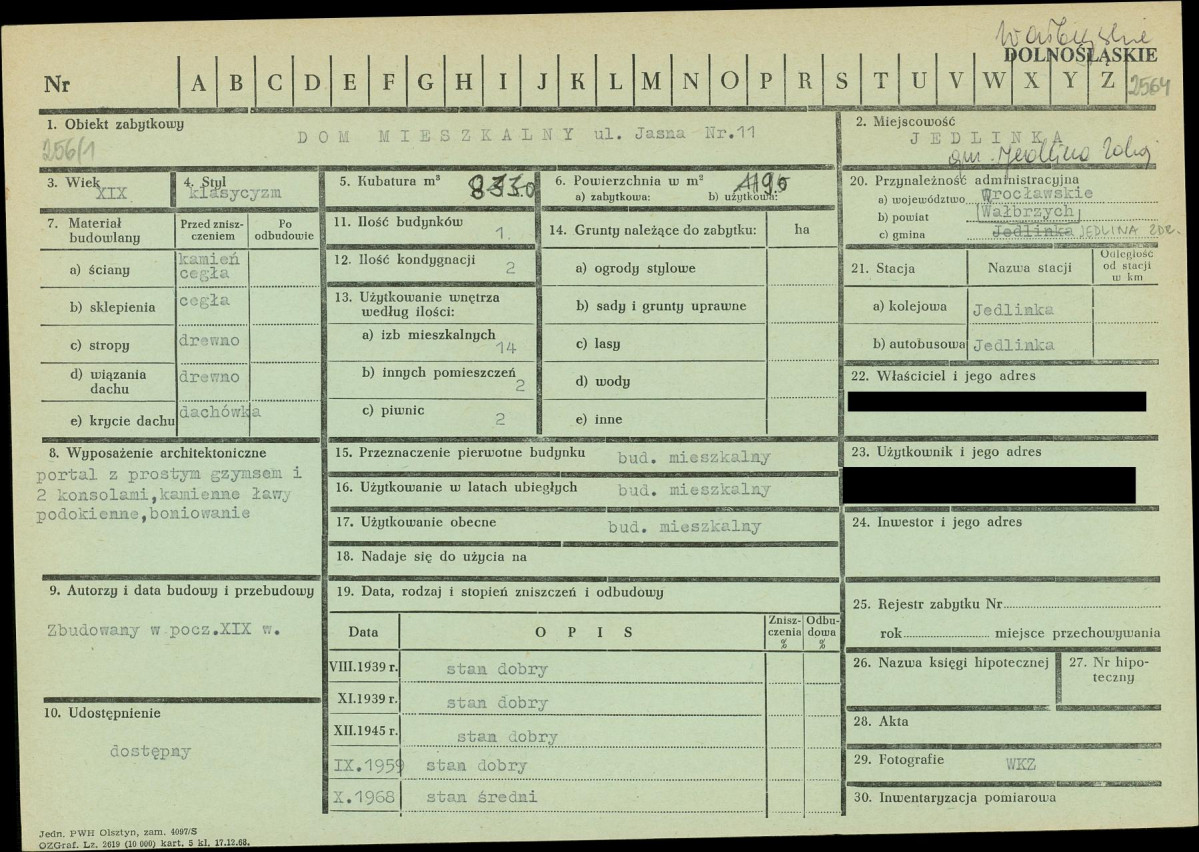 Wałbrzyskie
DOLNOŚLĄSKIE
Nr A B C D E F G H I J K L M N O P R S T U V W X Y Z 2564
1. Obiekt zabytkowy
DOM MIESZKALNY ul. Jasna Nr.11
256/1
2. Miejscowość
JEDLINKA
gm. Jedlina Zdrój
3. Wiek
XIX
4. Styl
klasycyzm
5. Kubatura m³
6. Powierzchnia w m²
a) zabytkowa: b) użytkowa:
20. Przynależność administracyjna
a) województwo Wrocławskie
b) powiat Wałbrzych
c) gmina Jedlinka JEDLINA ZDR.
7. Materiał budowlany
Przed znisz-
czeniem
Po
odbudowie
a) ściany kamień
cegła
b) sklepienia cegła
c) stropy drewno
d) wiązania
dachu drewno
e) krycie dachu dachówka
11. Ilość budynków 1.
12. Ilość kondygnacji 2
13. Użytkowanie wnętrza
według ilości:
a) izb mieszkalnych 14
b) innych pomieszczeń 2
c) piwnic 2
14. Grunty należące do zabytku: ha
a) ogrody stylowe
b) sady i grunty uprawne
c) lasy
d) wody
e) inne
21. Stacja Nazwa stacji
Odległość
od stacji
w km
a) kolejowa Jedlinka
b) autobusowa Jedlinka
22. Właściciel i jego adres
8. Wyposażenie architektoniczne
portal z prostym gzymsem i
2 konsolami,kamienne ławy
podokienne,boniowanie
15. Przeznaczenie pierwotne budynku bud. mieszkalny
16. Użytkowanie w latach ubiegłych bud. mieszkalny
17. Użytkowanie obecne bud. mieszkalny
18. Nadaje się do użycia na
23. Użytkownik i jego adres
24. Inwestor i jego adres
9. Autorzy i data budowy i przebudowy
Zbudowany w pocz.XIX w.
19. Data, rodzaj i stopień zniszczeń i odbudowy
Data OPIS
Znisz-
czenia
%
Odbu-
dowa
%
VIII.1939 r. stan dobry
XI.1939 r. stan dobry
XII.1945 r. stan dobry
IX.1959 stan dobry
X.1968 stan średni
25. Rejestr zabytku Nr
rok miejsce przechowywania
26. Nazwa księgi hipotecznej
27. Nr hipo-
teczny
10. Udostępnienie
dostępny
28. Akta
29. Fotografie WKZ
30. Inwentaryzacja pomiarowa
Jedn. PWH Olsztyn, zam. 4097/S
OZGraf. Lz. 2619 (10 000) kart. 5 kl. 17.12.68.